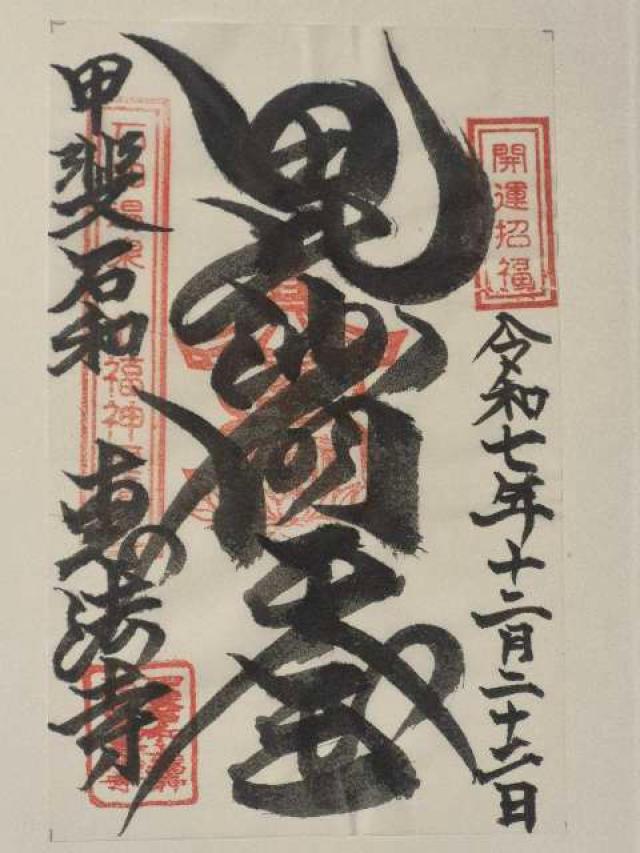 開運招福
令和七年十二月二十二日
毘沙門天王
甲斐石和
恵法寺
石和温泉
福神